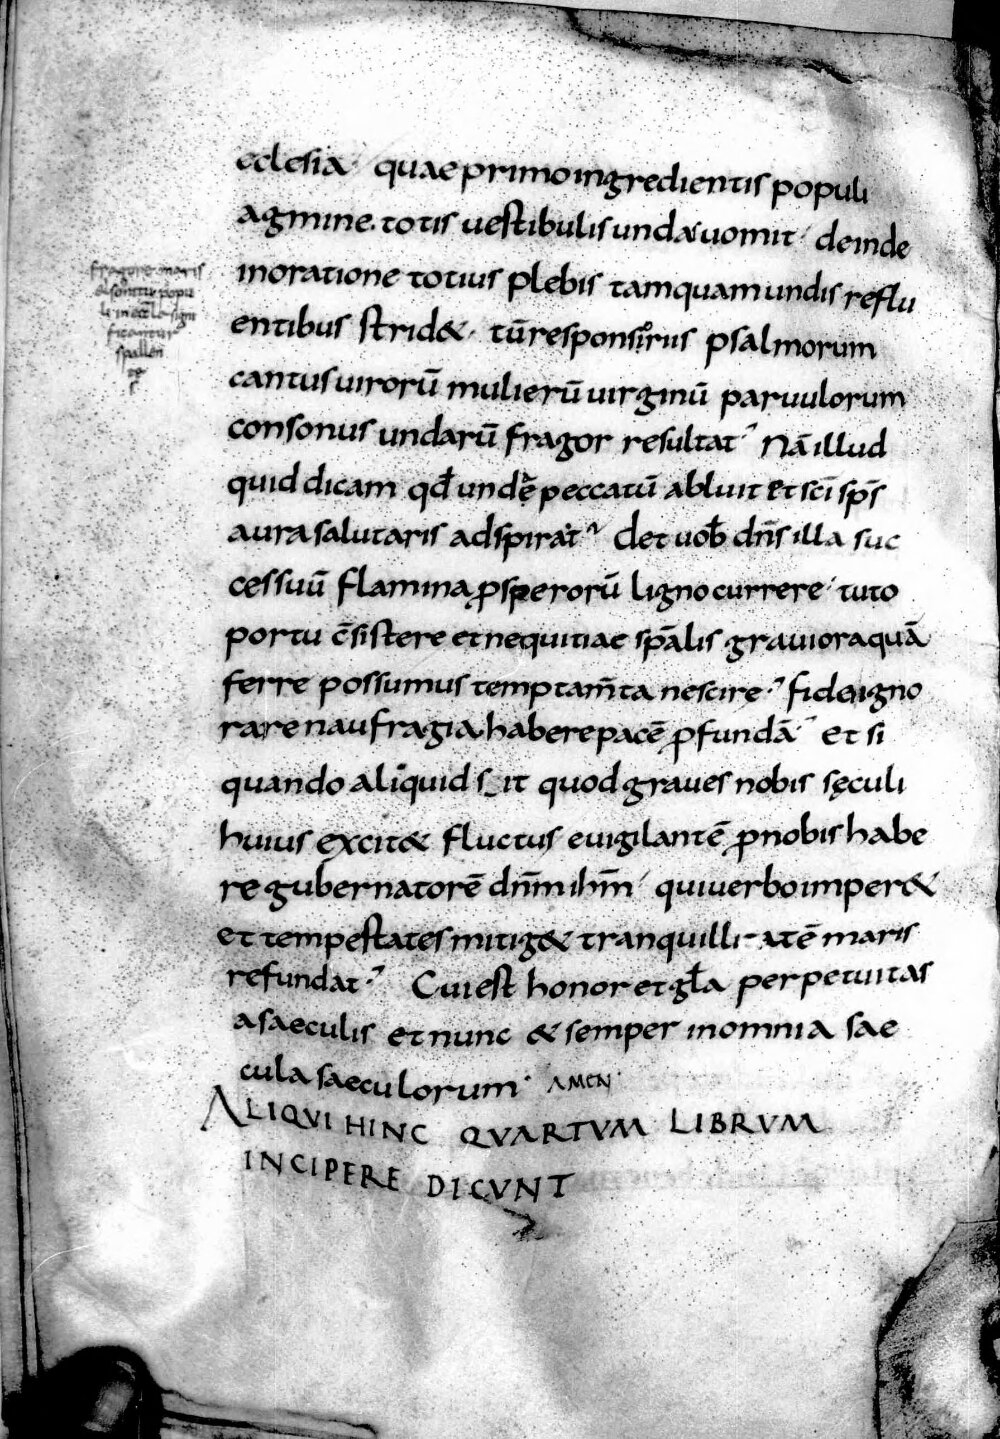 ecclesia· quae primo ingredientis populi
agmine. totis uestibulis undas uomit· deinde
in oratione totius plebis tamquam undis reflu
entibus strid&· tū responsoriis psalmorum
cantus uirorū mulierū uirginū paruulorum
consonus undarū fragor resultat· Nā illud
quid dicam qđ unde peccatū abluit et sc̄i sp̄s
aura salutaris adspirat· det uob̄ dn̄s illa suc
cessuū flamina ꝓsperorū ligno currere· tuto
portu c̄sistere et nequitiae sp̄alis grauiora quā
ferre possumus temptam̄ta nescire· fidei igno
rare naufragia habere pacē ꝓfundā et si
quando aliquid sit quod graues nobis sęculi
huius excit& fluctus euigilantē ꝓ nobis habe
re gubernatorē dn̄m ih̄m qui uerbo imper&
et tempestates mitig& tranquillitatē maris
refundat· Cui est honor et gl̄a perpetuitas
a saeculis et nunc & semper in omnia sae
cula saeculorum· AMEN·
ALIQUI HINC QVARTVM LIBRVM
INCIPERE DICVNT
fragore maris
& sonitu popu
li in eccl̄a signi
ficantur